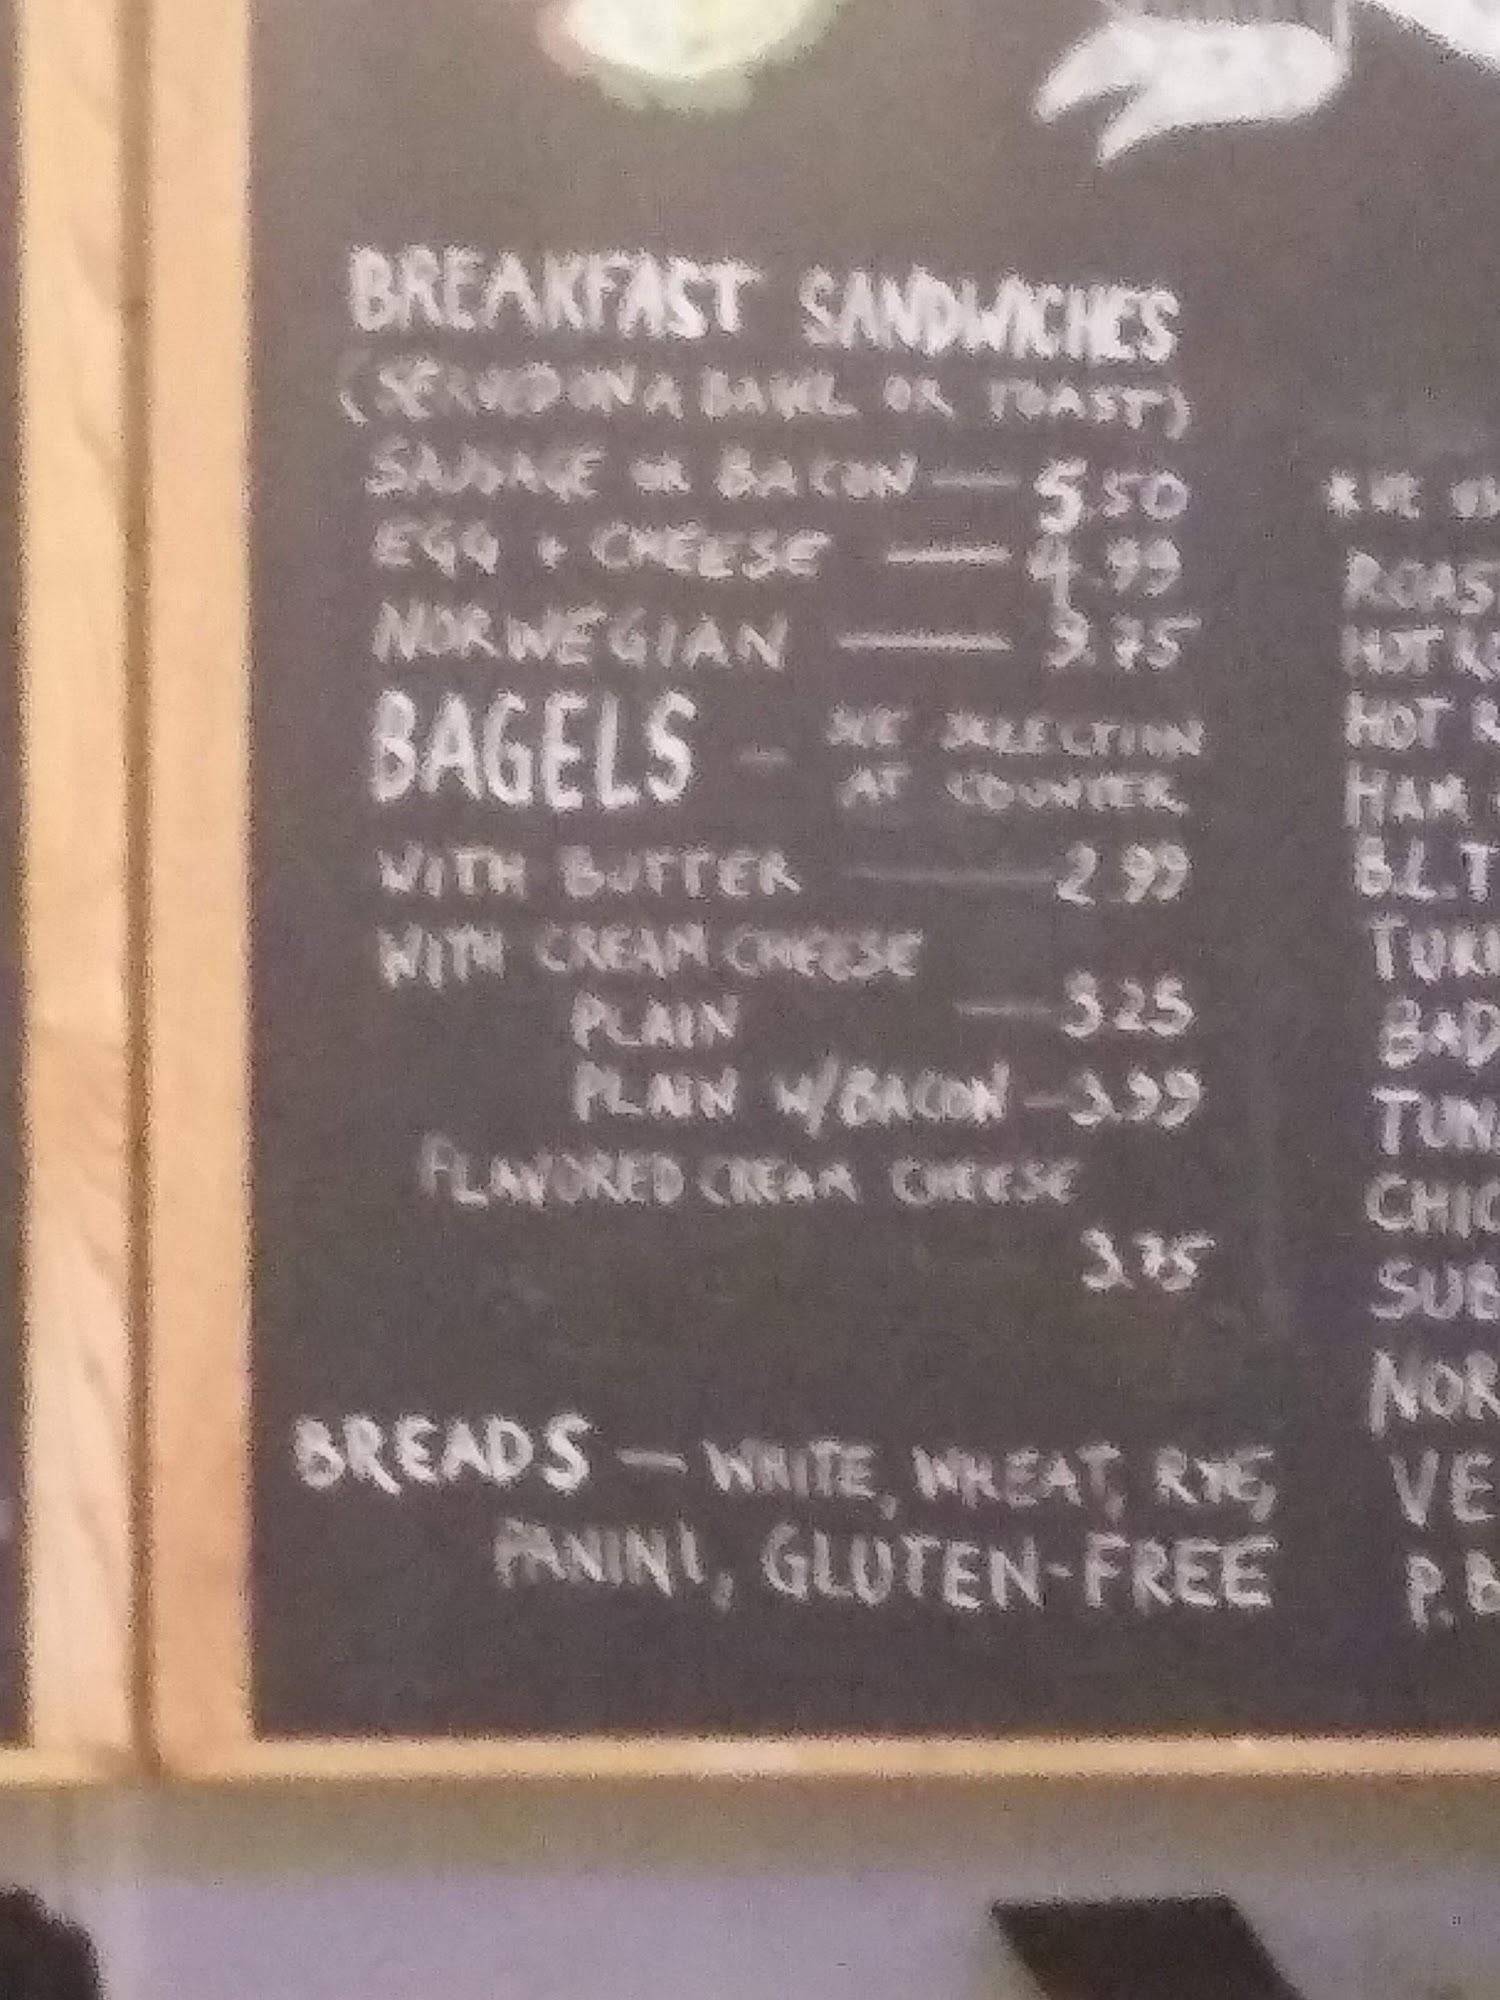 BREAKFAST SANDWICHES
(SERVED ON A BAGEL OR TOAST)
SAUSAGE OR BACON — 5.50
EGG + CHEESE — 4.99
NORWEGIAN —
BAGELS - SEE SELECTION
AT COUNTER
WITH BUTTER — 2.99
WITH CREAM CHEESE
PLAIN — 3.25
PLAIN W/BACON - 3.99
FLAVORED CREAM CHEESE
3.75
BREADS — WHITE, WHEAT, RYE,
PANINI, GLUTEN-FREE
*WE
ROAS
HOT
HOT
HAM
B.L.T
TURK
TUN
CHIC
SUB
NOR
VE
P.B